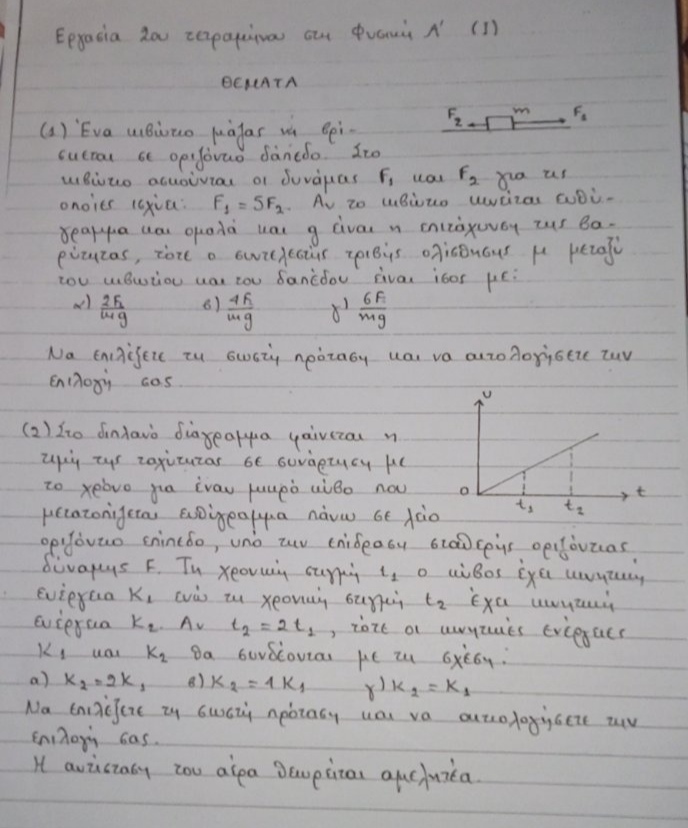 Εργασία 2ου τετραμήνου στη Φυσική Α' (1)
ΘΕΜΑΤΑ
F₂ m F₁
(1) Ένα κιβώτιο μάζας m βρί-
σκεται σε οριζόντιο δάπεδο. Στο
κιβώτιο ασκούνται οι δυνάμεις F₁ και F₂ για τις
οποίες ισχύει: F₁ = 5F₂. Αν το κιβώτιο κινείται ευθύ-
γραμμα και ομαλά και g είναι η επιτάχυνση της βα-
ρύτητας, τότε ο συντελεστής τριβής ολίσθησης μ μεταξύ
του κιβωτίου και του δαπέδου είναι ίσος με:
α) 2F₂/mg β) 4F₂/mg γ) 6F₂/mg
Να επιλέξετε τη σωστή πρόταση και να αιτιολογήσετε την
επιλογή σας.
υ
(2) Στο διπλανό διάγραμμα φαίνεται η
τιμή της ταχύτητας σε συνάρτηση με
το χρόνο για έναν μικρό κύβο που
0 t₁ t₂ t
μετατοπίζεται ευθύγραμμα πάνω σε λείο
οριζόντιο επίπεδο, υπό την επίδραση σταθερής οριζόντιας
δύναμης F. Τη χρονική στιγμή t₁ ο κύβος έχει κινητική
ενέργεια K₁ ενώ τη χρονική στιγμή t₂ έχει κινητική
ενέργεια K₂. Αν t₂ = 2t₁, τότε οι κινητικές ενέργειες
K₁ και K₂ θα συνδέονται με τη σχέση:
α) K₂ = 2K₁ β) K₂ = 4K₁ γ) K₂ = K₁
Να επιλέξετε τη σωστή πρόταση και να αιτιολογήσετε την
επιλογή σας.
Η αντίσταση του αέρα θεωρείται αμελητέα.